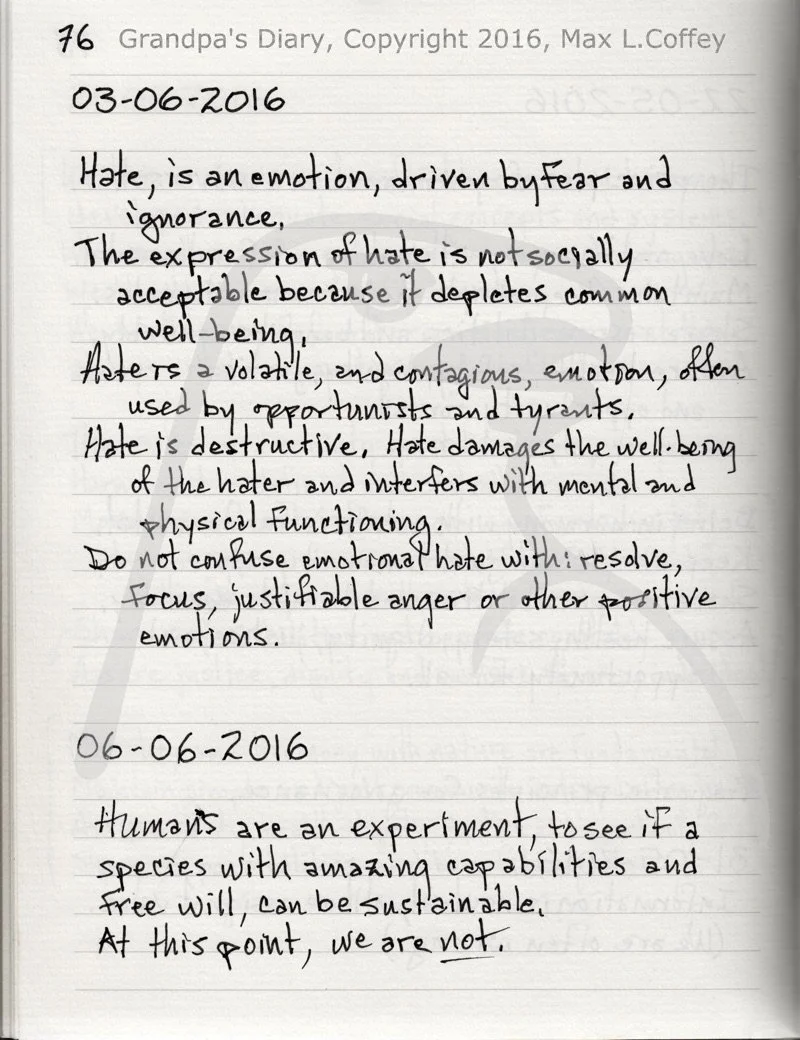 76 Grandpa's Diary, Copyright 2016, Max L.Coffey
03-06-2016
Hate, is an emotion, driven by fear and
ignorance.
The expression of hate is not socially
acceptable because it depletes common
well-being.
Hate is a volatile, and contagious, emotion, often
used by opportunists and tyrants.
Hate is destructive. Hate damages the well-being
of the hater and interfers with mental and
physical functioning.
Do not confuse emotional hate with: resolve,
focus, justifiable anger or other positive
emotions.
06-06-2016
Humans are an experiment, to see if a
species with amazing capabilities and
free will, can be sustainable.
At this point, we are not.